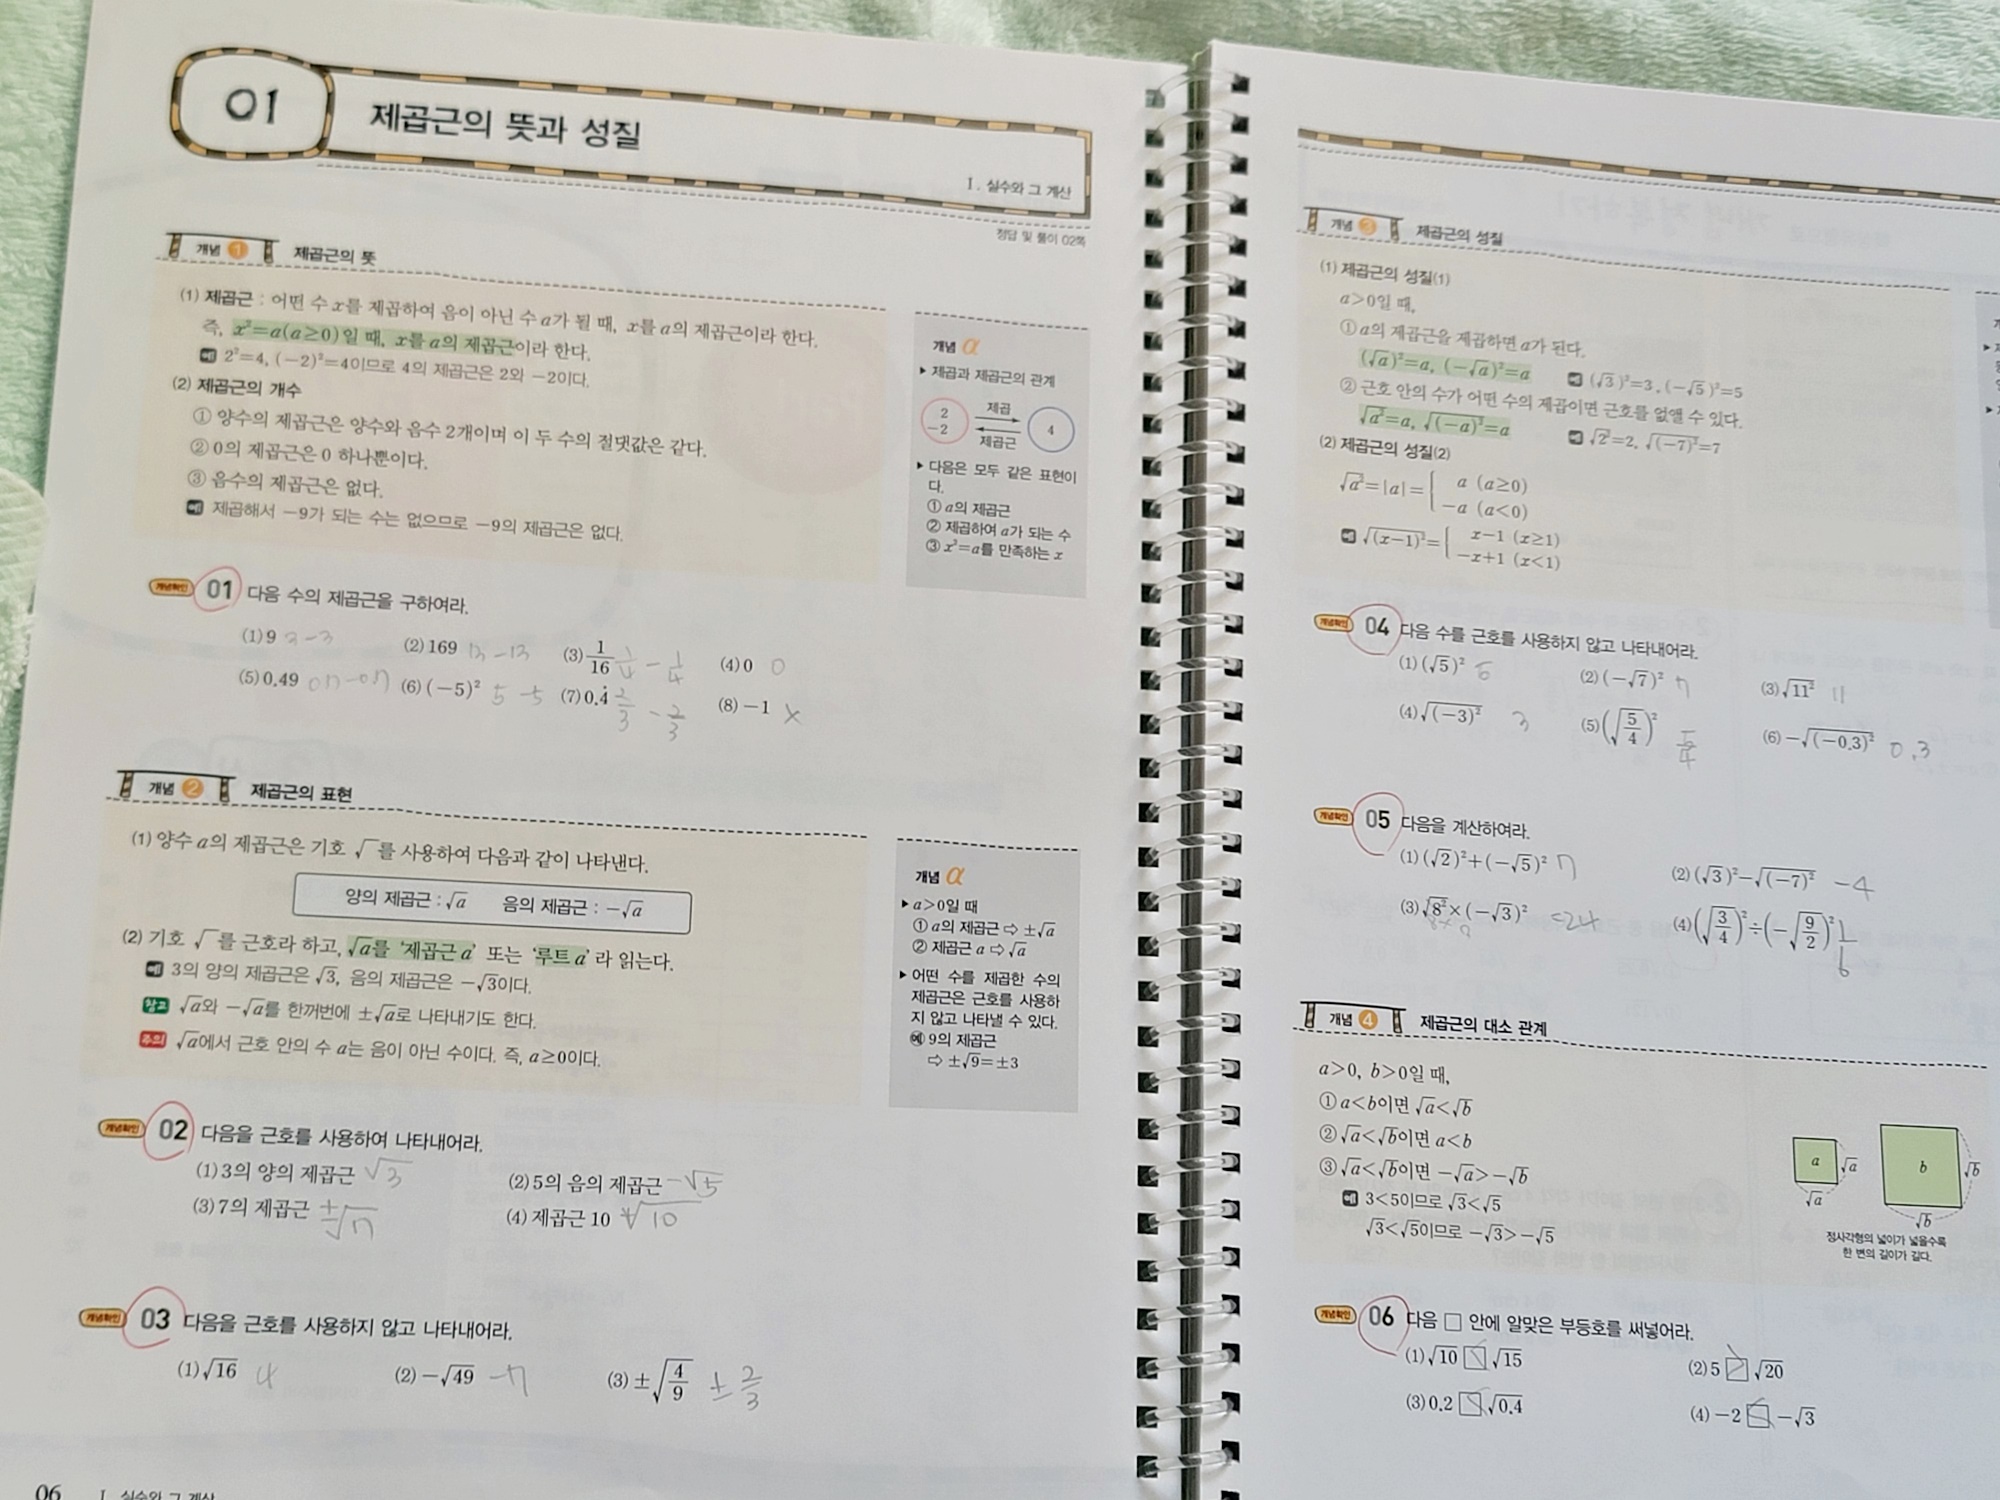 01
제곱근의 뜻과 성질
Ⅰ. 실수와 그 계산
정답 및 풀이 02쪽
개념 1 제곱근의 뜻
(1) 제곱근 : 어떤 수 x를 제곱하여 음이 아닌 수 a가 될 때, x를 a의 제곱근이라 한다.
즉, x²=a(a≥0)일 때, x를 a의 제곱근이라 한다.
예 2²=4, (-2)²=4이므로 4의 제곱근은 2와 -2이다.
(2) 제곱근의 개수
① 양수의 제곱근은 양수와 음수 2개이며 이 두 수의 절댓값은 같다.
② 0의 제곱근은 0 하나뿐이다.
③ 음수의 제곱근은 없다.
예 제곱해서 -9가 되는 수는 없으므로 -9의 제곱근은 없다.
개념 α
▶ 제곱과 제곱근의 관계
2 제곱 4
-2 제곱근
▶ 다음은 모두 같은 표현이
다.
① a의 제곱근
② 제곱하여 a가 되는 수
③ x²=a를 만족하는 x
개념확인 01 다음 수의 제곱근을 구하여라.
(1) 9 3 -3 (2) 169 13 -13 (3) 1/16 1/4 - 1/4 (4) 0 0
(5) 0.49 0.7 -0.7 (6) (-5)² 5 -5 (7) 0.4̇ 2/3 - 2/3 (8) -1 x
개념 2 제곱근의 표현
(1) 양수 a의 제곱근은 기호 √를 사용하여 다음과 같이 나타낸다.
양의 제곱근 : √a 음의 제곱근 : -√a
(2) 기호 √를 근호라 하고, √a를 '제곱근 a' 또는 '루트 a'라 읽는다.
예 3의 양의 제곱근은 √3, 음의 제곱근은 -√3이다.
참고 √a와 -√a를 한꺼번에 ±√a로 나타내기도 한다.
주의 √a에서 근호 안의 수 a는 음이 아닌 수이다. 즉, a≥0이다.
개념 α
▶ a>0일 때
① a의 제곱근 ⇨ ±√a
② 제곱근 a ⇨ √a
▶ 어떤 수를 제곱한 수의
제곱근은 근호를 사용하
지 않고 나타낼 수 있다.
예 9의 제곱근
⇨ ±√9=±3
개념확인 02 다음을 근호를 사용하여 나타내어라.
(1) 3의 양의 제곱근 √3 (2) 5의 음의 제곱근 -√5
(3) 7의 제곱근 ±√7 (4) 제곱근 10 √10
개념확인 03 다음을 근호를 사용하지 않고 나타내어라.
(1) √16 4 (2) -√49 -7 (3) ±√(4/9) ± 2/3
06 Ⅰ. 실수와 그 계산
개념 3 제곱근의 성질
(1) 제곱근의 성질(1)
a>0일 때,
① a의 제곱근을 제곱하면 a가 된다.
(√a)²=a, (-√a)²=a 예 (√3)²=3, (-√5)²=5
② 근호 안의 수가 어떤 수의 제곱이면 근호를 없앨 수 있다.
√a²=a, √(-a)²=a 예 √2²=2, √(-7)²=7
(2) 제곱근의 성질(2)
√a²=|a|={ a (a≥0)
-a (a<0)
예 √(x-1)²={ x-1 (x≥1)
-x+1 (x<1)
개념확인 04 다음 수를 근호를 사용하지 않고 나타내어라.
(1) (√5)² 5 (2) (-√7)² 7 (3) √11² 11
(4) √(-3)² 3 (5) (√(5/4))² 5/4 (6) -√(-0.3)² 0.3
개념확인 05 다음을 계산하여라.
(1) (√2)²+(-√5)² 7 (2) (√3)²-√(-7)² -4
(3) √8²×(-√3)² =24 (4) (√(3/4))²÷(-√(9/2))² 1/6
개념 4 제곱근의 대소 관계
a>0, b>0일 때,
① a<b이면 √a<√b
② √a<√b이면 a<b
③ √a<√b이면 -√a>-√b
예 3<5이므로 √3<√5
√3<√5이므로 -√3>-√5
a √a b √b
√a √b
정사각형의 넓이가 넓을수록
한 변의 길이가 길다.
개념확인 06 다음 □ 안에 알맞은 부등호를 써넣어라.
(1) √10 < √15 (2) 5 > √20
(3) 0.2 < √0.4 (4) -2 < -√3